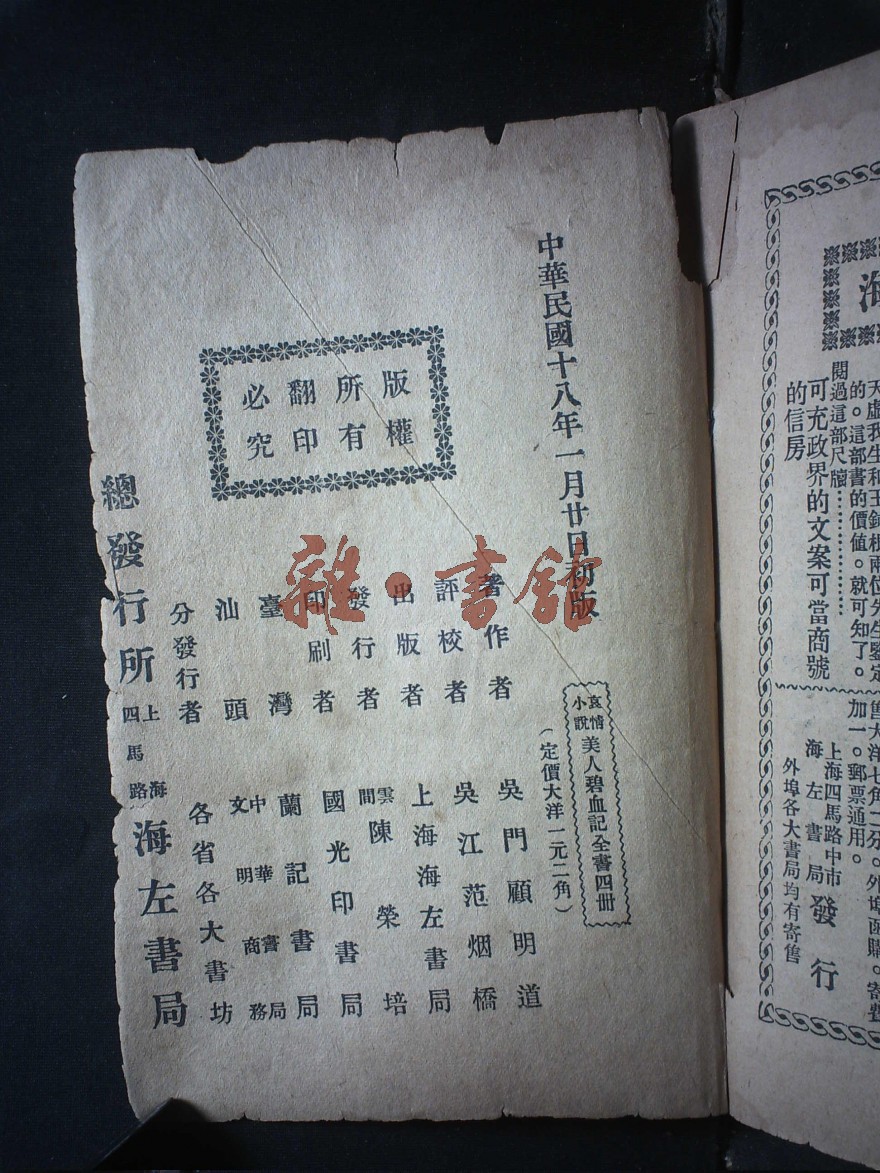 中華民國十八年一月廿日初版
哀情小說 美人碧血記全書四册
(定價大洋一元二角)
著作者 吳門顧明道
評校者 吳江范烟橋
出版者 上海海左書局
發行者 雲間陳榮培
印刷者 國光印書局
臺灣 蘭記書局
汕頭 中華書局 文明商務
分發行者 各省各大書坊
總發行所 上海四馬路 海左書局
版權所有翻印必究
雜·書館
海
天虛我生和王鈍根兩位先生鑒定
的。這部書的價值。就可知了。
閱過這部尺牘…………………
可充政界的文案可當商號
的信房
售大洋七角二分。外埠函購。寄費
加一。郵票通用。
上海四馬路中市
海左書局 發行
外埠各大書局均有寄售